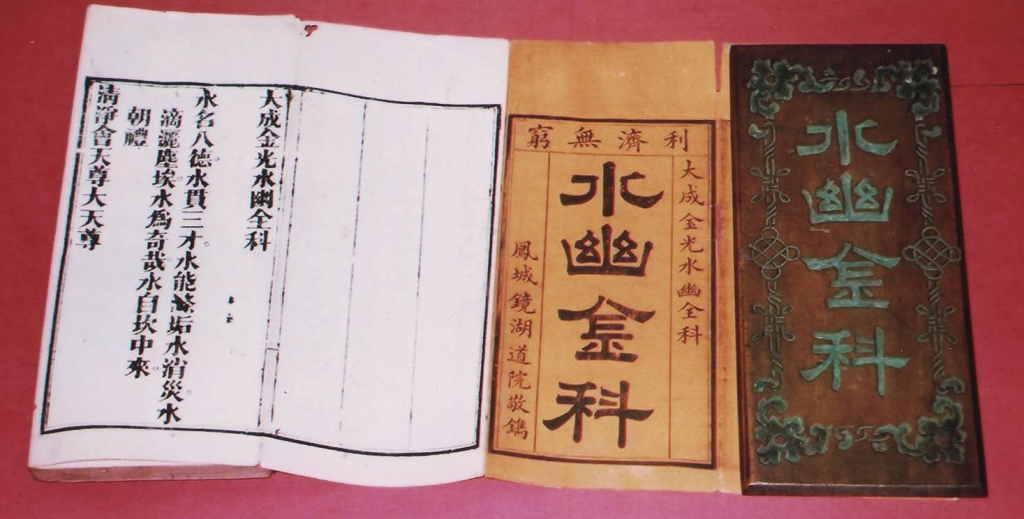 水幽金科
利濟無窮
大成金光水幽全科
水幽金科
鳳城鏡湖道院敬鐫
大成金光水幽全科
水名八德。水貫三才水能滌垢水消災。水
滴灑塵埃水爲奇哉水自坎中來
朝禮
淸淨會大尊大天尊